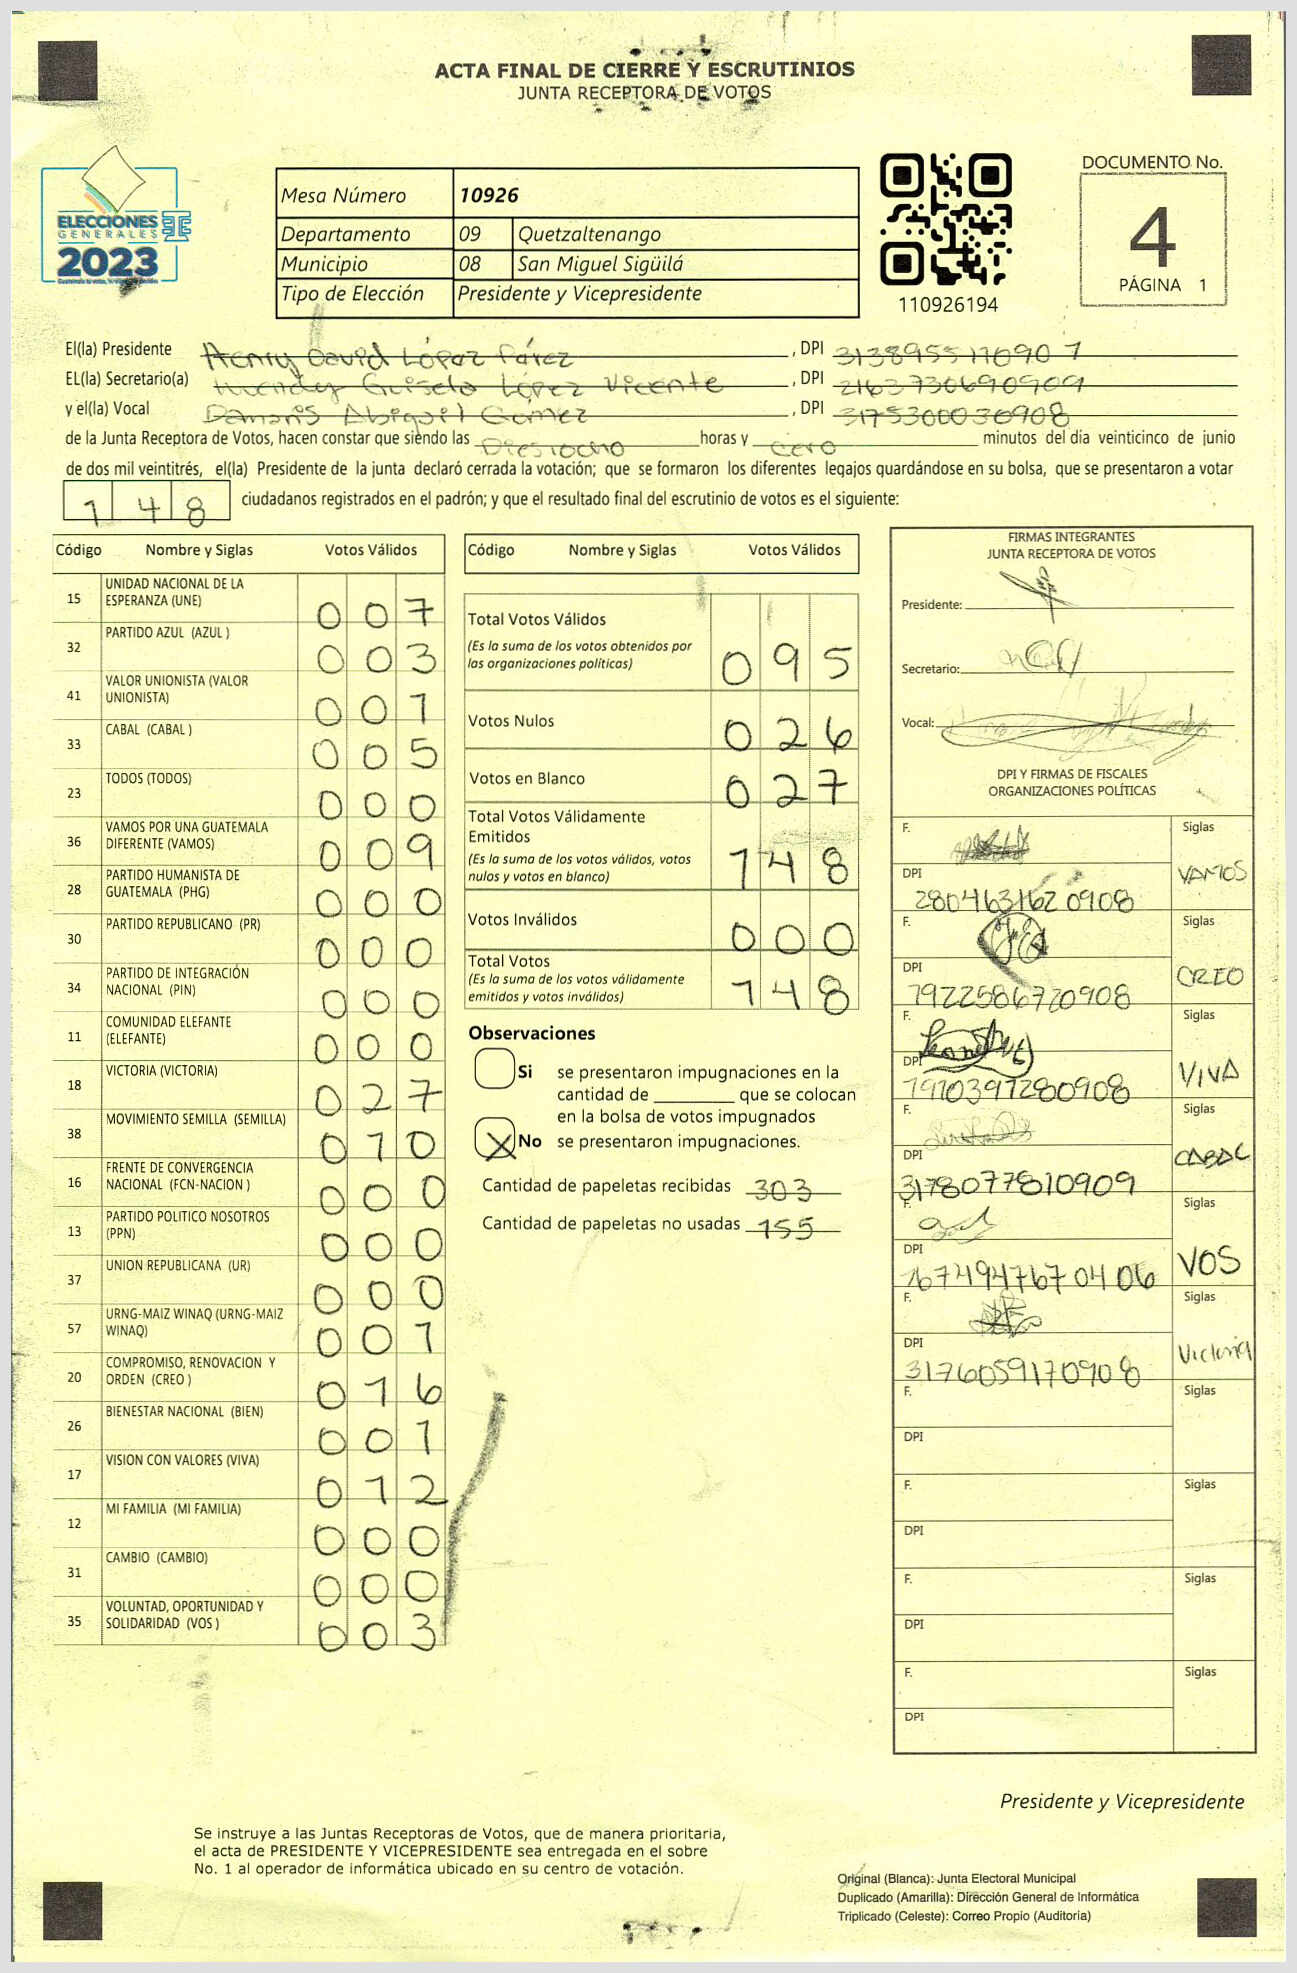 ACTA FINAL DE CIERRE Y ESCRUTINIOS
JUNTA RECEPTORA DE VOTOS
ELECCIONES
GENERALES
2023
Mesa Número 10926
Departamento 09 Quetzaltenango
Municipio 08 San Miguel Sigüilá
Tipo de Elección Presidente y Vicepresidente
110926194
DOCUMENTO No.
4
PÁGINA 1
El(la) Presidente Henry David López Pérez , DPI
EL(la) Secretario(a) Guisela López Vicente , DPI 2163730690909
y el(la) Vocal Damaris Abiguil Gómez , DPI 3175300030908
de la Junta Receptora de Votos, hacen constar que siendo las Dieciocho horas y cero minutos del día veinticinco de junio
de dos mil veintitrés, el(la) Presidente de la junta declaró cerrada la votación; que se formaron los diferentes legajos guardándose en su bolsa, que se presentaron a votar
148 ciudadanos registrados en el padrón; y que el resultado final del escrutinio de votos es el siguiente:
Código Nombre y Siglas Votos Válidos
15 UNIDAD NACIONAL DE LA ESPERANZA (UNE) 007
32 PARTIDO AZUL (AZUL ) 003
41 VALOR UNIONISTA (VALOR UNIONISTA) 001
33 CABAL (CABAL ) 005
23 TODOS (TODOS) 000
36 VAMOS POR UNA GUATEMALA DIFERENTE (VAMOS) 009
28 PARTIDO HUMANISTA DE GUATEMALA (PHG) 000
30 PARTIDO REPUBLICANO (PR) 000
34 PARTIDO DE INTEGRACIÓN NACIONAL (PIN) 000
11 COMUNIDAD ELEFANTE (ELEFANTE) 000
18 VICTORIA (VICTORIA) 027
38 MOVIMIENTO SEMILLA (SEMILLA) 010
16 FRENTE DE CONVERGENCIA NACIONAL (FCN-NACION ) 000
13 PARTIDO POLITICO NOSOTROS (PPN) 000
37 UNION REPUBLICANA (UR) 000
57 URNG-MAIZ WINAQ (URNG-MAIZ WINAQ) 001
20 COMPROMISO, RENOVACION Y ORDEN (CREO ) 016
26 BIENESTAR NACIONAL (BIEN) 001
17 VISION CON VALORES (VIVA) 012
12 MI FAMILIA (MI FAMILIA) 000
31 CAMBIO (CAMBIO) 000
35 VOLUNTAD, OPORTUNIDAD Y SOLIDARIDAD (VOS ) 003
Código Nombre y Siglas Votos Válidos
Total Votos Válidos 095
(Es la suma de los votos obtenidos por
las organizaciones políticas)
Votos Nulos 026
Votos en Blanco 027
Total Votos Válidamente
Emitidos 148
(Es la suma de los votos válidos, votos
nulos y votos en blanco)
Votos Inválidos 000
Total Votos 148
(Es la suma de los votos válidamente
emitidos y votos inválidos)
Observaciones
Si se presentaron impugnaciones en la
cantidad de ________ que se colocan
en la bolsa de votos impugnados
X No se presentaron impugnaciones.
Cantidad de papeletas recibidas 303
Cantidad de papeletas no usadas 155
FIRMAS INTEGRANTES
JUNTA RECEPTORA DE VOTOS
Presidente:
Secretario:
Vocal:
DPI Y FIRMAS DE FISCALES
ORGANIZACIONES POLÍTICAS
F. Siglas VAMOS
DPI 2804631620908
F. Siglas CREO
DPI 1922586720908
F. Siglas VIVA
DPI 1910397280908
F. Siglas CABAL
DPI 3178077810909
F. Siglas VOS
DPI 1674947670406
F. Siglas Victoria
DPI 3176059170908
F. Siglas
DPI
F. Siglas
DPI
F. Siglas
DPI
F. Siglas
DPI
Presidente y Vicepresidente
Se instruye a las Juntas Receptoras de Votos, que de manera prioritaria,
el acta de PRESIDENTE Y VICEPRESIDENTE sea entregada en el sobre
No. 1 al operador de informática ubicado en su centro de votación.
Original (Blanca): Junta Electoral Municipal
Duplicado (Amarilla): Dirección General de Informática
Triplicado (Celeste): Correo Propio (Auditoria)